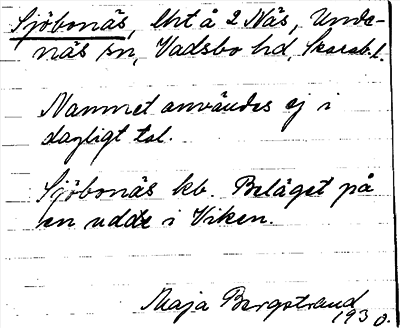 Sjöbonäs, lht å 2 Näs, Unde-
näs sn, Vadsbo hd, Skarab. l.
Namnet användes ej i
dagligt tal.
Sjöbonäs kb. Beläget på
en udde i Viken.
Maja Bergstrand
1930.